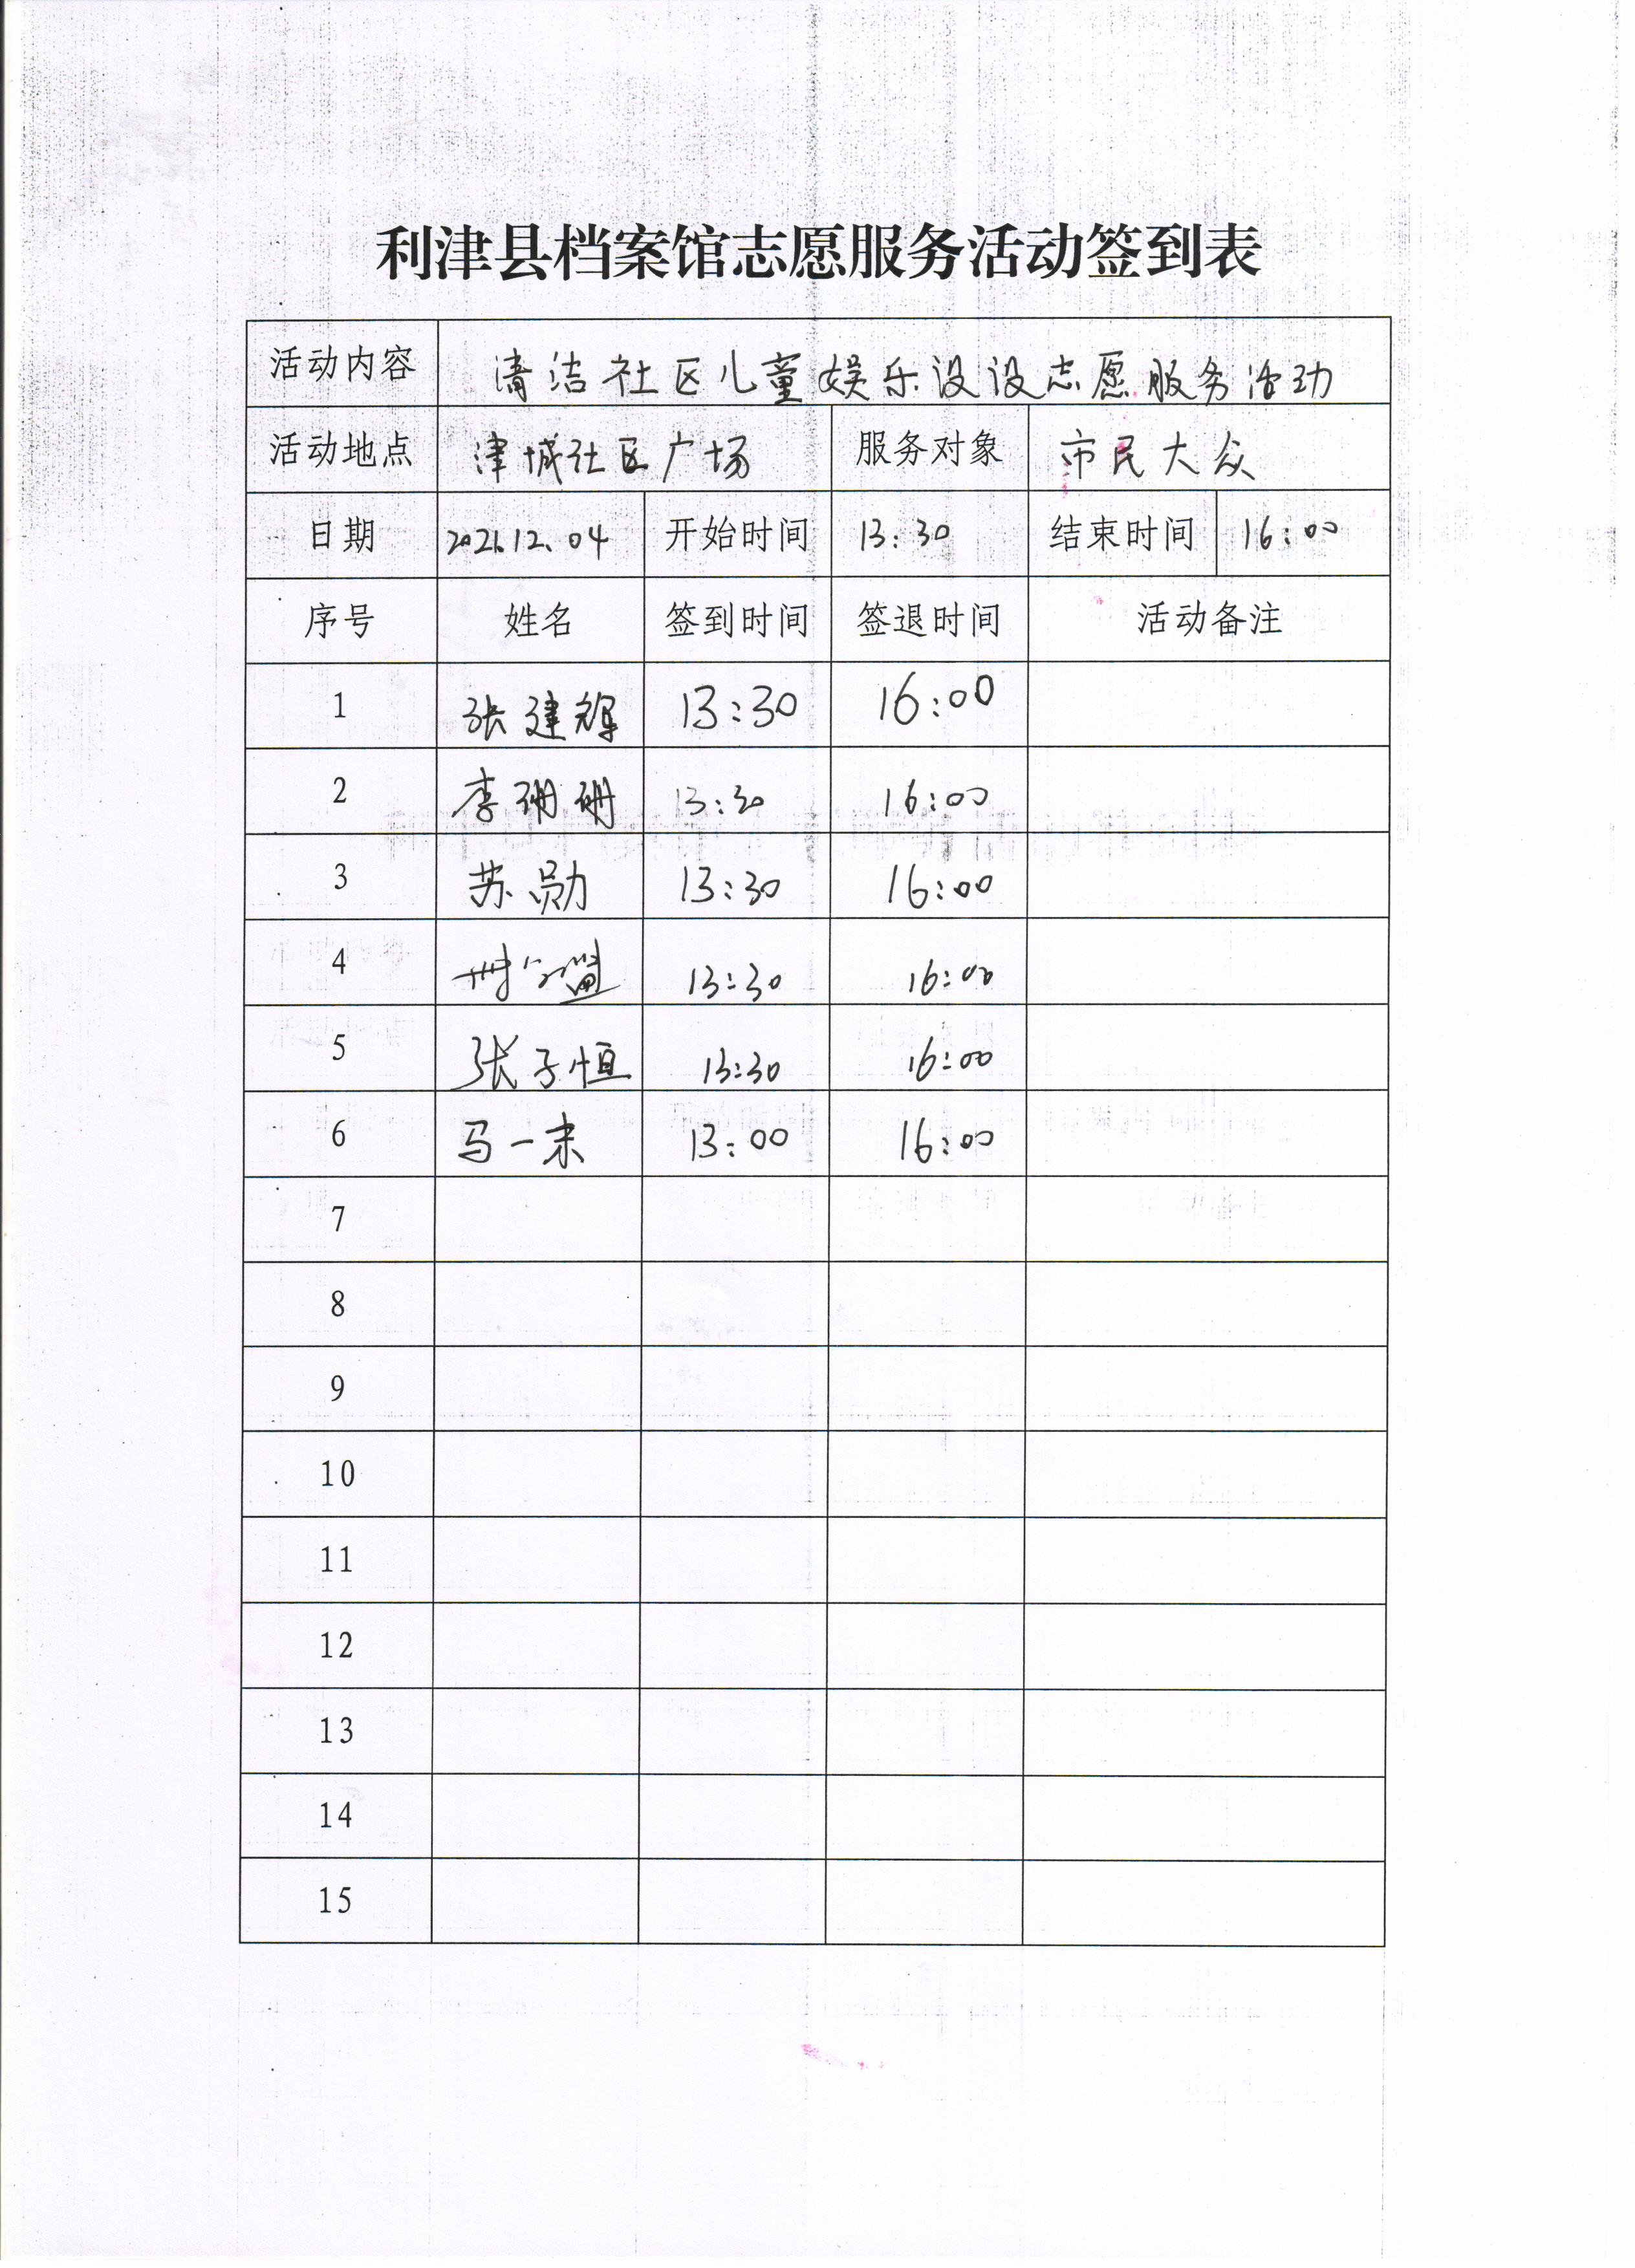 利津县档案馆志愿服务活动签到表
活动内容 清洁社区儿童娱乐设设志愿服务活动
活动地点 津城社区广场 服务对象 市民大众
日期 2021.12.04 开始时间 13:30 结束时间 16:00
序号 姓名 签到时间 签退时间 活动备注
1 张建辉 13:30 16:00
2 李珊珊 13:30 16:00
3 苏勋 13:30 16:00
4 13:30 16:00
5 张子恒 13:30 16:00
6 马一未 13:00 16:00
7
8
9
10
11
12
13
14
15